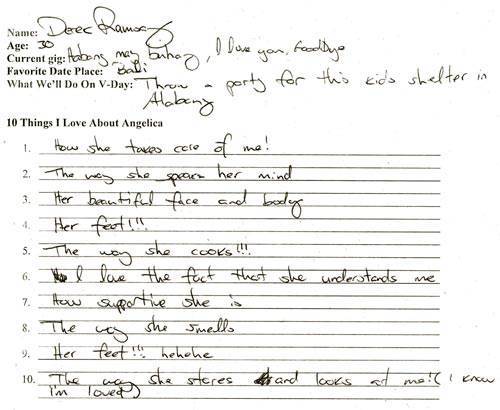 Name: Derek Ramsay
Age: 30
Current gig: Habang may buhay, I love you, Goodbye
Favorite Date Place: Bali
What We'll Do On V-Day: Throw a party for this kids shelter in
Alabang
10 Things I Love About Angelica
1. How she takes care of me!
2. The way she speaks her mind
3. Her beautiful face and body
4. Her feet!!!
5. The way she cooks!!!
6. I love the fact that she understands me
7. How supportive she is
8. The way she smells
9. Her feet!!! hehehe
10. The way she stares and looks at me! (I know
I'm loved)